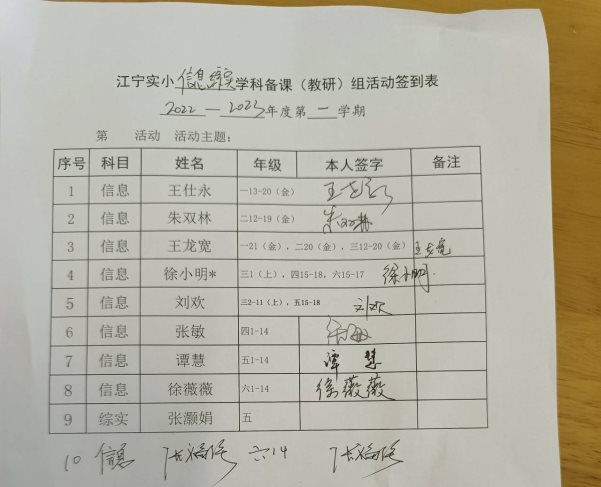 江宁实小信息综实学科备课（教研）组活动签到表
2022—2023年度第一学期
第 活动 活动主题：
序号 科目 姓名 年级 本人签字 备注
1 信息 王仕永 一13-20（金）
2 信息 朱双林 二12-19（金） 朱双林
3 信息 王龙宽 一21（金），二20（金），三12-20（金） 王龙宽
4 信息 徐小明* 三1（上），四15-18，六15-17 徐小明
5 信息 刘欢 三2-11（上），五15-18 刘欢
6 信息 张敏 四1-14 张敏
7 信息 谭慧 五1-14 谭慧
8 信息 徐薇薇 六1-14 徐薇薇
9 综实 张灏娟 五
10 信息 六14